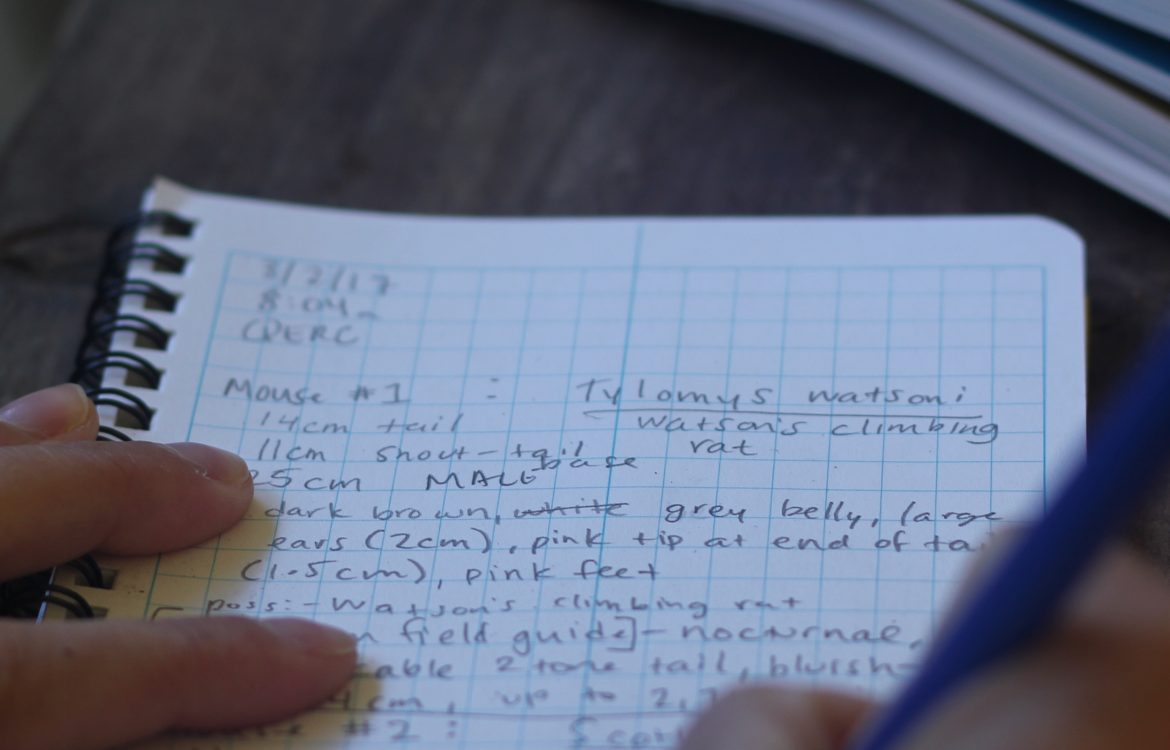 3/2/17
8:04
CPERC
Mouse #1 : Tylomys watsoni
14cm tail Watson's climbing
11cm snout-tail base rat
25cm MALE
dark brown, white grey belly, large
ears (2cm), pink tip at end of
(1.5cm), pink feet
poss:- Watson's climbing rat
field guide]- nocturnal,
2 tone tail, bluish-
cm, up to
#2 :